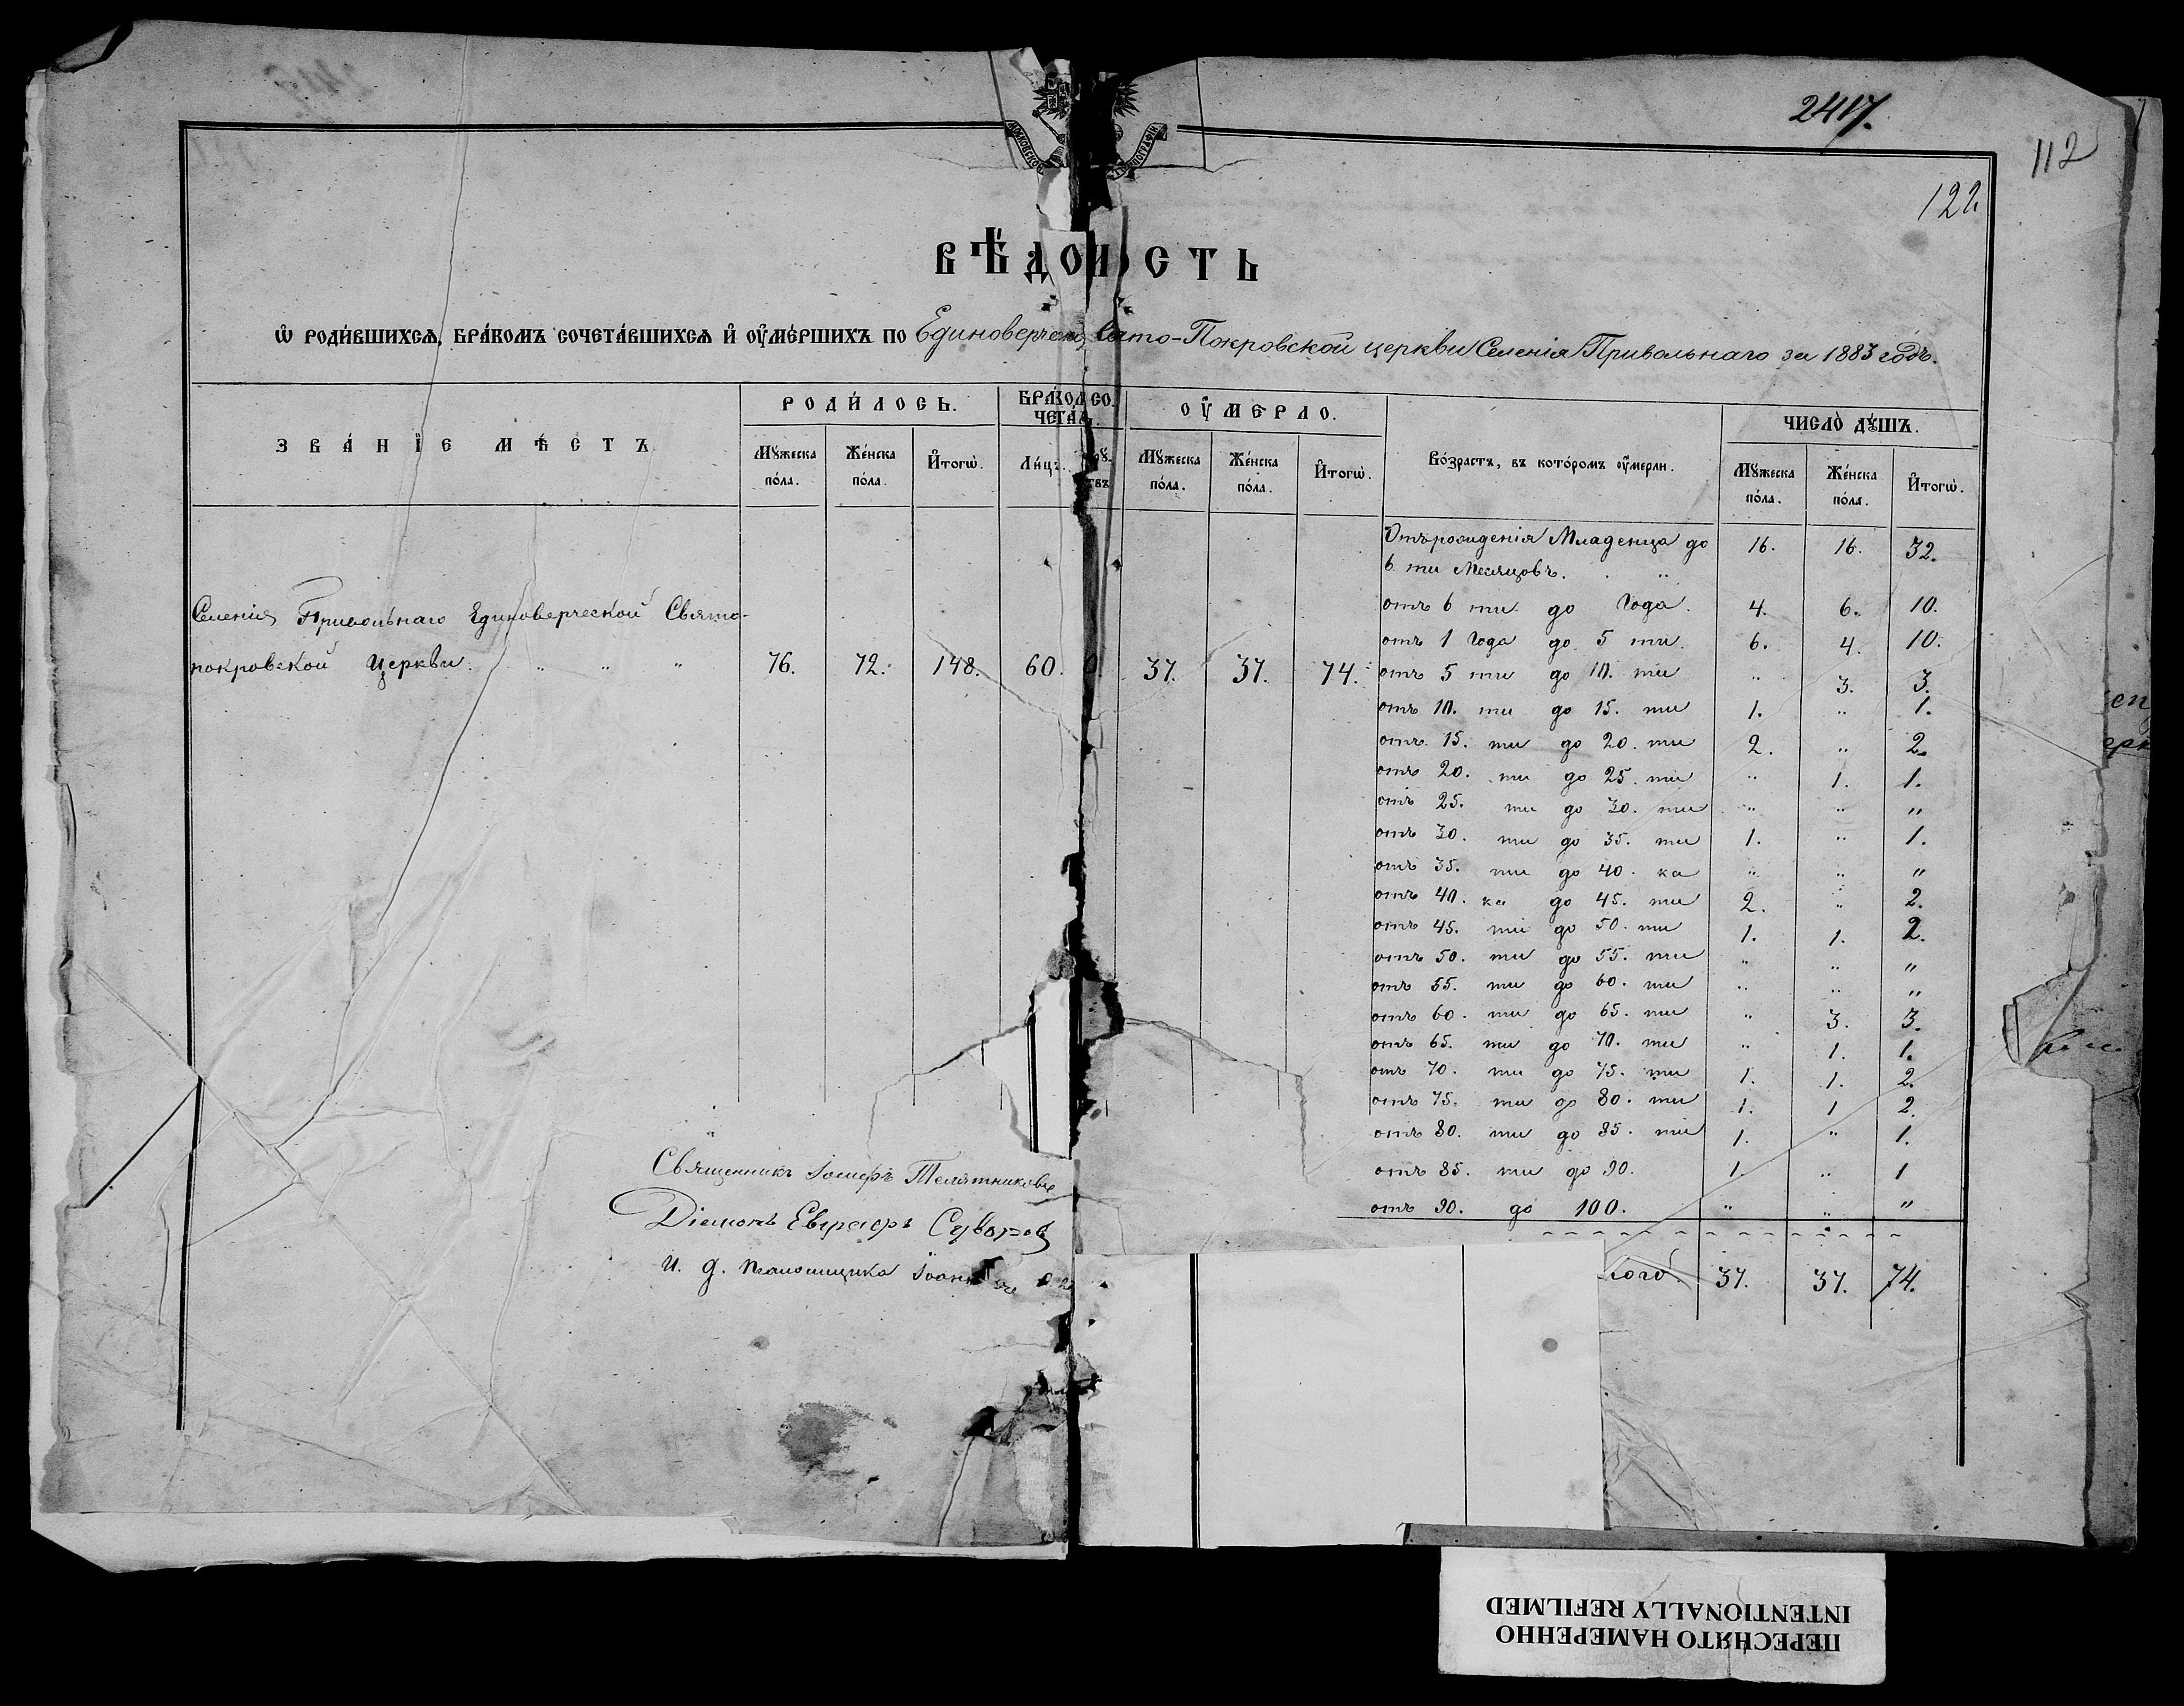 2417.
112
122
МОСКОВСКОЙ ТИПОГРАФІИ
ВѢДОМОСТЬ
Ѡ РОДИ́ВШИХСЯ, БРА́КОМЪ СОЧЕТА́ВШИХСЯ И҆ ОУ҆МЕ́РШИХЪ ПО Единоверческ Свято-Покровской церкви Селенія Привольнаго за 1883 годъ.
ЗВА́НІЕ МѢ́СТЪ
РОДИ́ЛОСЬ.
БРА́КОМ СО ЧЕТА́Л.
ОУ҆МЕРЛО.
Во́зрастъ, въ кото́ромъ оу҆́мерли.
ЧИСЛО̀ ДꙊ́ШЪ.
Мꙋ́жеска по́ла. Же́нска по́ла. И҆тогѡ̀. Ли́цъ. Мꙋ́жеска по́ла. Же́нска по́ла. И҆тогѡ̀. Мꙋ́жеска по́ла. Же́нска по́ла. И҆тогѡ̀.
Селенія Привольнаго Единоверческой Свято-
покровской Церкви. „ „ „ 76. 72. 148. 60. 37. 37. 74.
Отъ рожденія Младенца до 16. 16. 32.
6 ти Месяцовъ. . „
отъ 6 ти до Года. 4. 6. 10.
отъ 1 Года до 5 ти. 6. 4. 10.
отъ 5 ти до 10. ти „ 3. 3.
отъ 10. ти до 15. ти 1. „ 1.
отъ 15. ти до 20. ти 2. „ 2.
отъ 20. ти до 25. ти „ 1. 1.
отъ 25. ти до 30. ти „ „ „
отъ 30. ти до 35. ти 1. „ 1.
отъ 35. ти до 40. ка „ „ „
отъ 40. ка до 45. ти 2. „ 2.
отъ 45. ти до 50. ти 1. 1. 2.
отъ 50. ти до 55. ти „ „ „
отъ 55. ти до 60. ти „ „ „
отъ 60. ти до 65. ти „ 3. 3.
отъ 65. ти до 70. ти „ 1. 1.
отъ 70. ти до 75. ти 1. 1. 2.
отъ 75. ти до 80. ти 1. 1 2.
отъ 80. ти до 85. ти 1. „ 1.
отъ 85. ти до 90. 1. „ 1
отъ 90. до 100. „ „ „
того. 37. 37. 74.
Священникъ Іосифъ Телятниковъ
Діаконъ Евграфъ Суворов
И. д. псаломщика Іоанн
ПЕРЕСНЯТО НАМЕРЕННО
INTENTIONALLY REFILMED